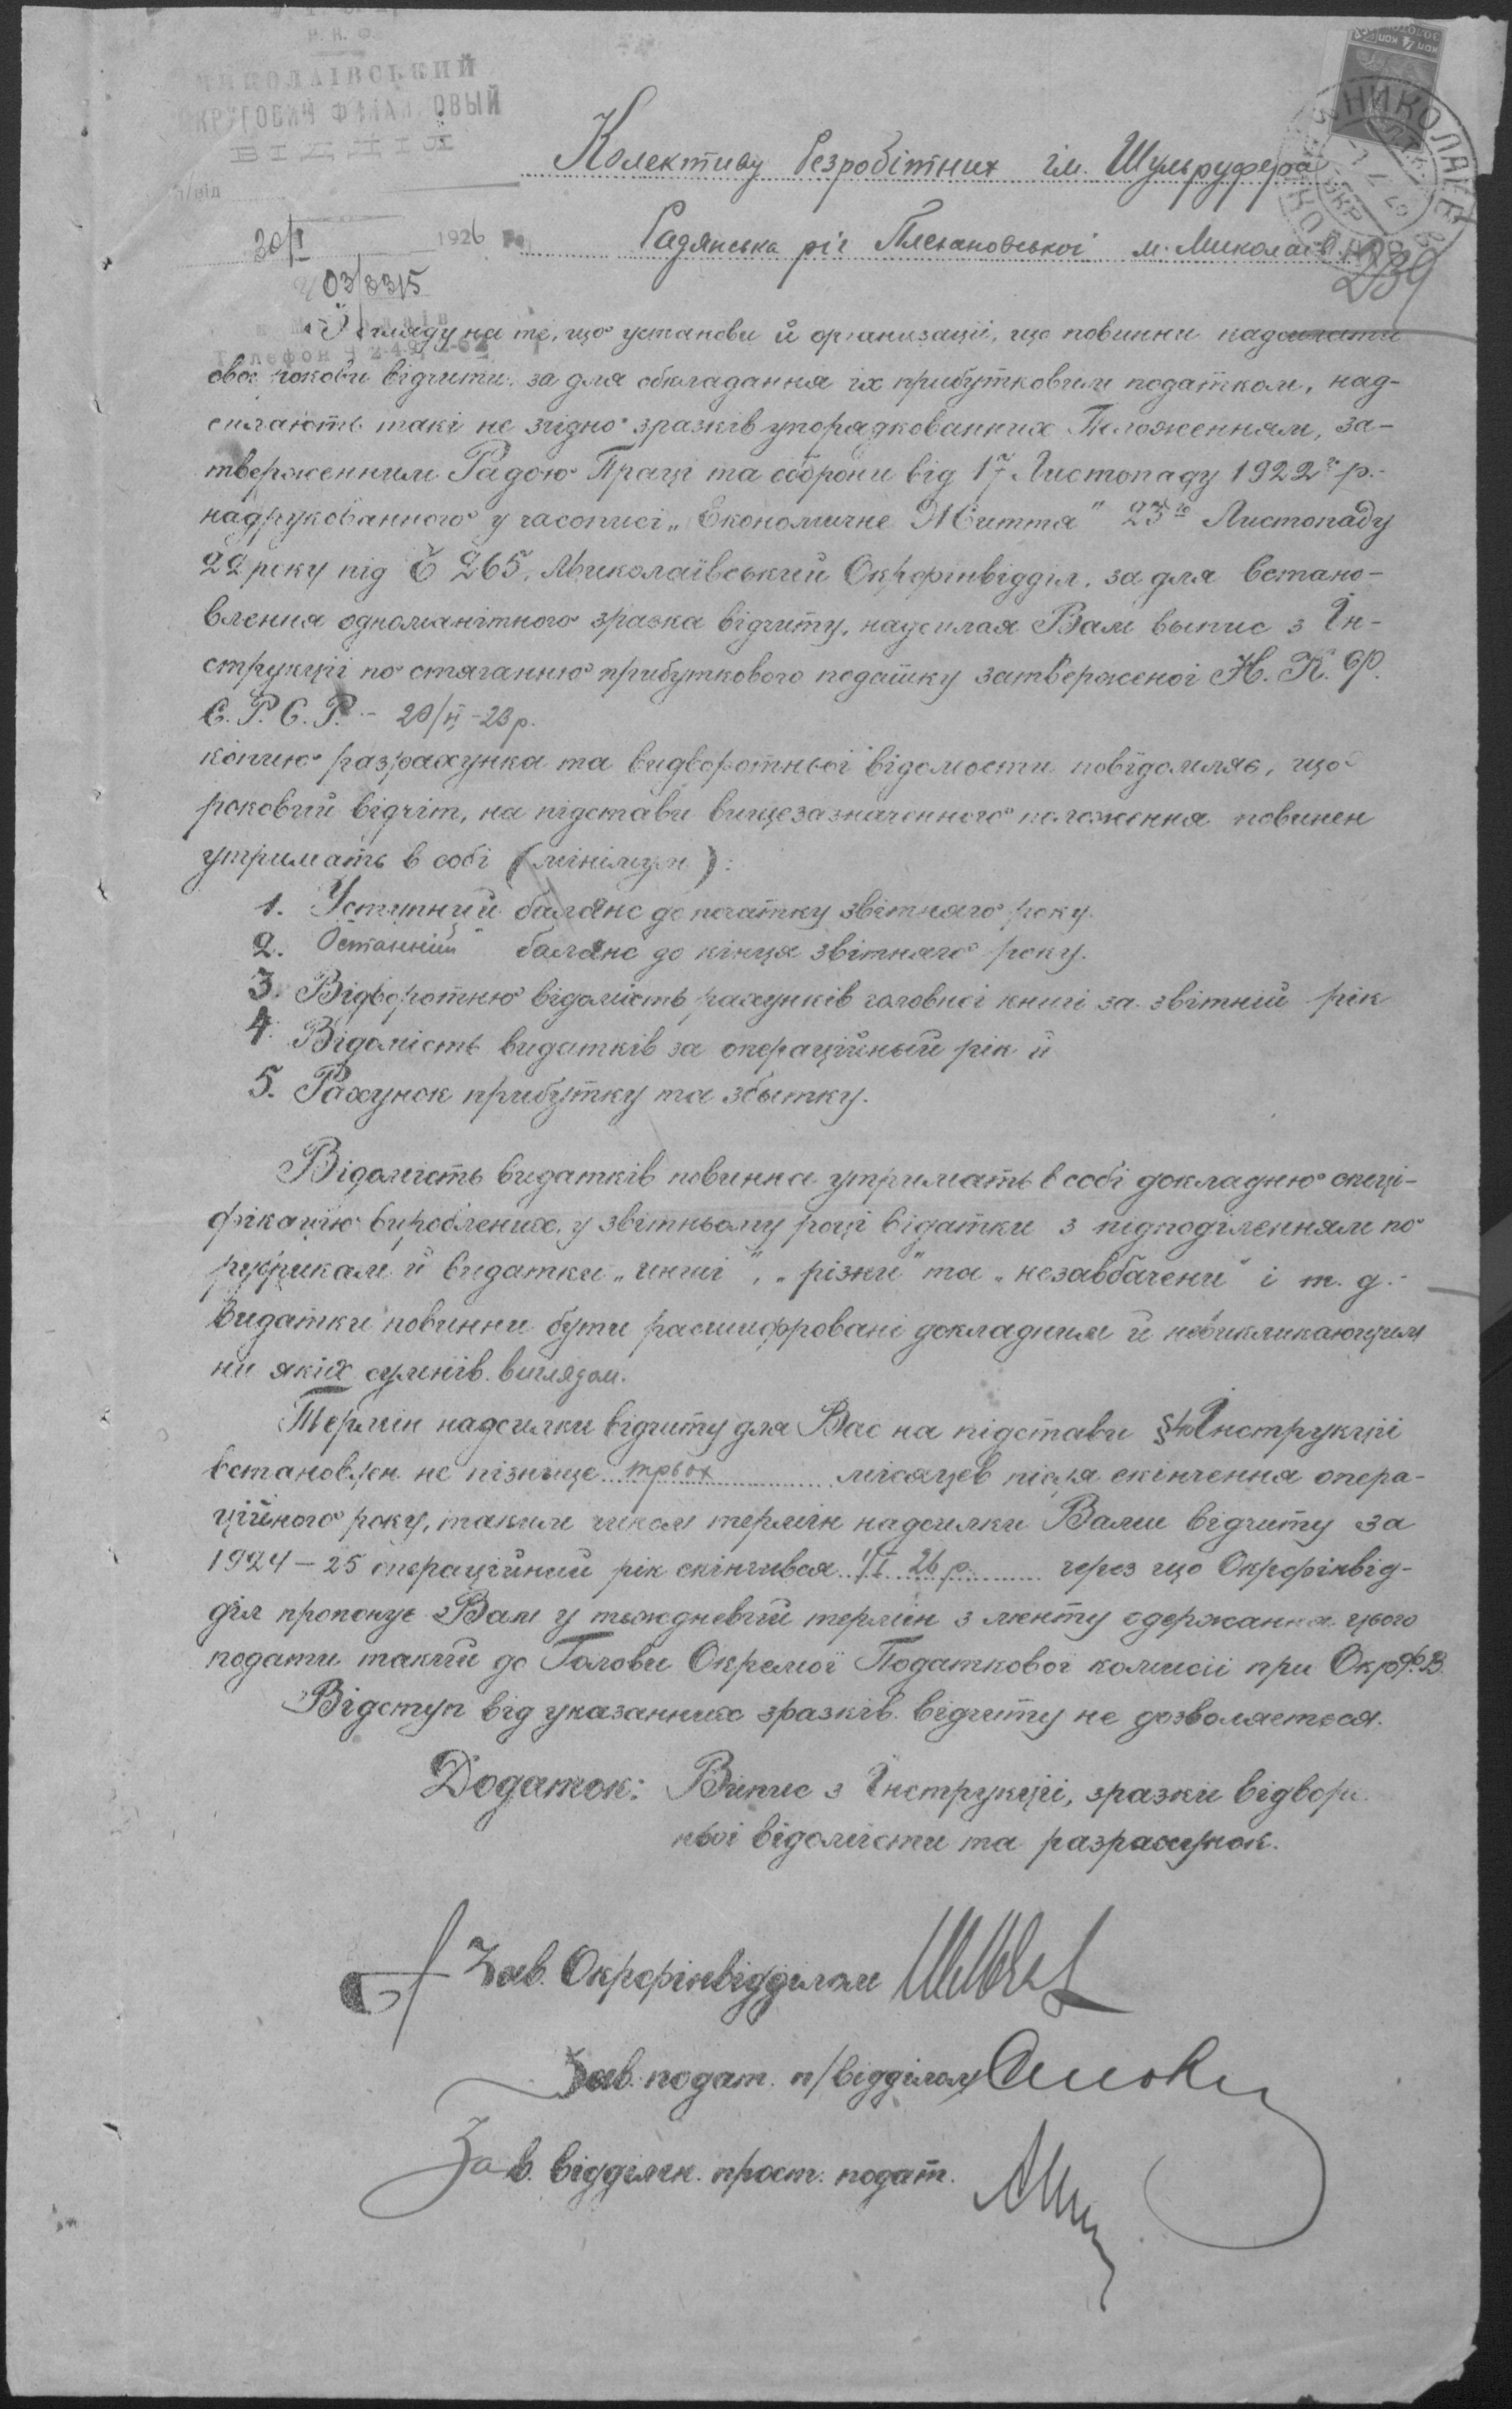 Н. К. Ф.
МИКОЛАЇВСЬКИЙ
ОКРУГОВИЙ ФІНАНСОВЫЙ
ВІДДІЛ
п/від
30/I 1926
03/3315
Телефон
НИКОЛАЕВ
239
Колективу безробітних ім. Шульруфера
Радянська ріг Плехановської м. Миколаїв
З огляду на те, що установи й організації, що повинни надсилати
свої рокови відчити за для обкладання їх прибутковим податком, над-
силають такі не згідно зразків упорядкованних Положенням, за-
тверженним Радою Праці та оборони від 17 Листопаду 1922го р.-
надрукованного у часописі „Економичне Життя" 23го Листопаду
22 року під Č 265, Миколаївський Окрфінвідділ, за для встано-
влення одноманітного зразка відчиту, надсилая Вам выпис з Ін-
струкції по стяганню прибуткового податку затверженої Н. К. Ф.
С. Р. С. Р. - 20/II-23 р.
копию разрахунка та видворотньої відомости повідомляє, що
роковий відчіт, на підстави вищезазначенного положення повинен
утримать в собі (мінімум):
1. Уступний баланс до початку звітняго року.
2. Останний баланс до кінця звітняго року.
3. Відворотню відомість рахунків головної книгі за звітній рік
4. Відомість видатків за операційный рік й
5. Рахунок прибутку та збытку.
Відомість видатків повинна утримать в собі докладню специ-
фікацію вироблених у звітньому році відатки з підподіленням по
рубрикам й видатки „инші", „різни" та „незавбачени" і т. д.-
Видатки повинни бути расшифровані докладним й невикликающим
ни яких сумнів. виглядом.
Термін надсилки відчиту для Вас на підстави § Інструкції
встановлен не пізнище трьох місяцев після скінчення опера-
ційного року, таким чином термін надсилки Вами відчиту за
1924-25 операційний рік скінчився 1/I 26 р. через що Окрфінвід-
діл пропонує Вам у тыждневий термін з менту одержання цього
подати такий до Голови Окремої Податкової комисії при ОкрФ.В.
Відступ від указанних зразків відчиту не дозволяеться.
Додаток: Випис з Інструкції, зразки відвори
ньої відомісти та разрахунок.
Зав. Окрфінвідділом
Зав. подат. п/відділом
Зав. відділен. прост. подат.